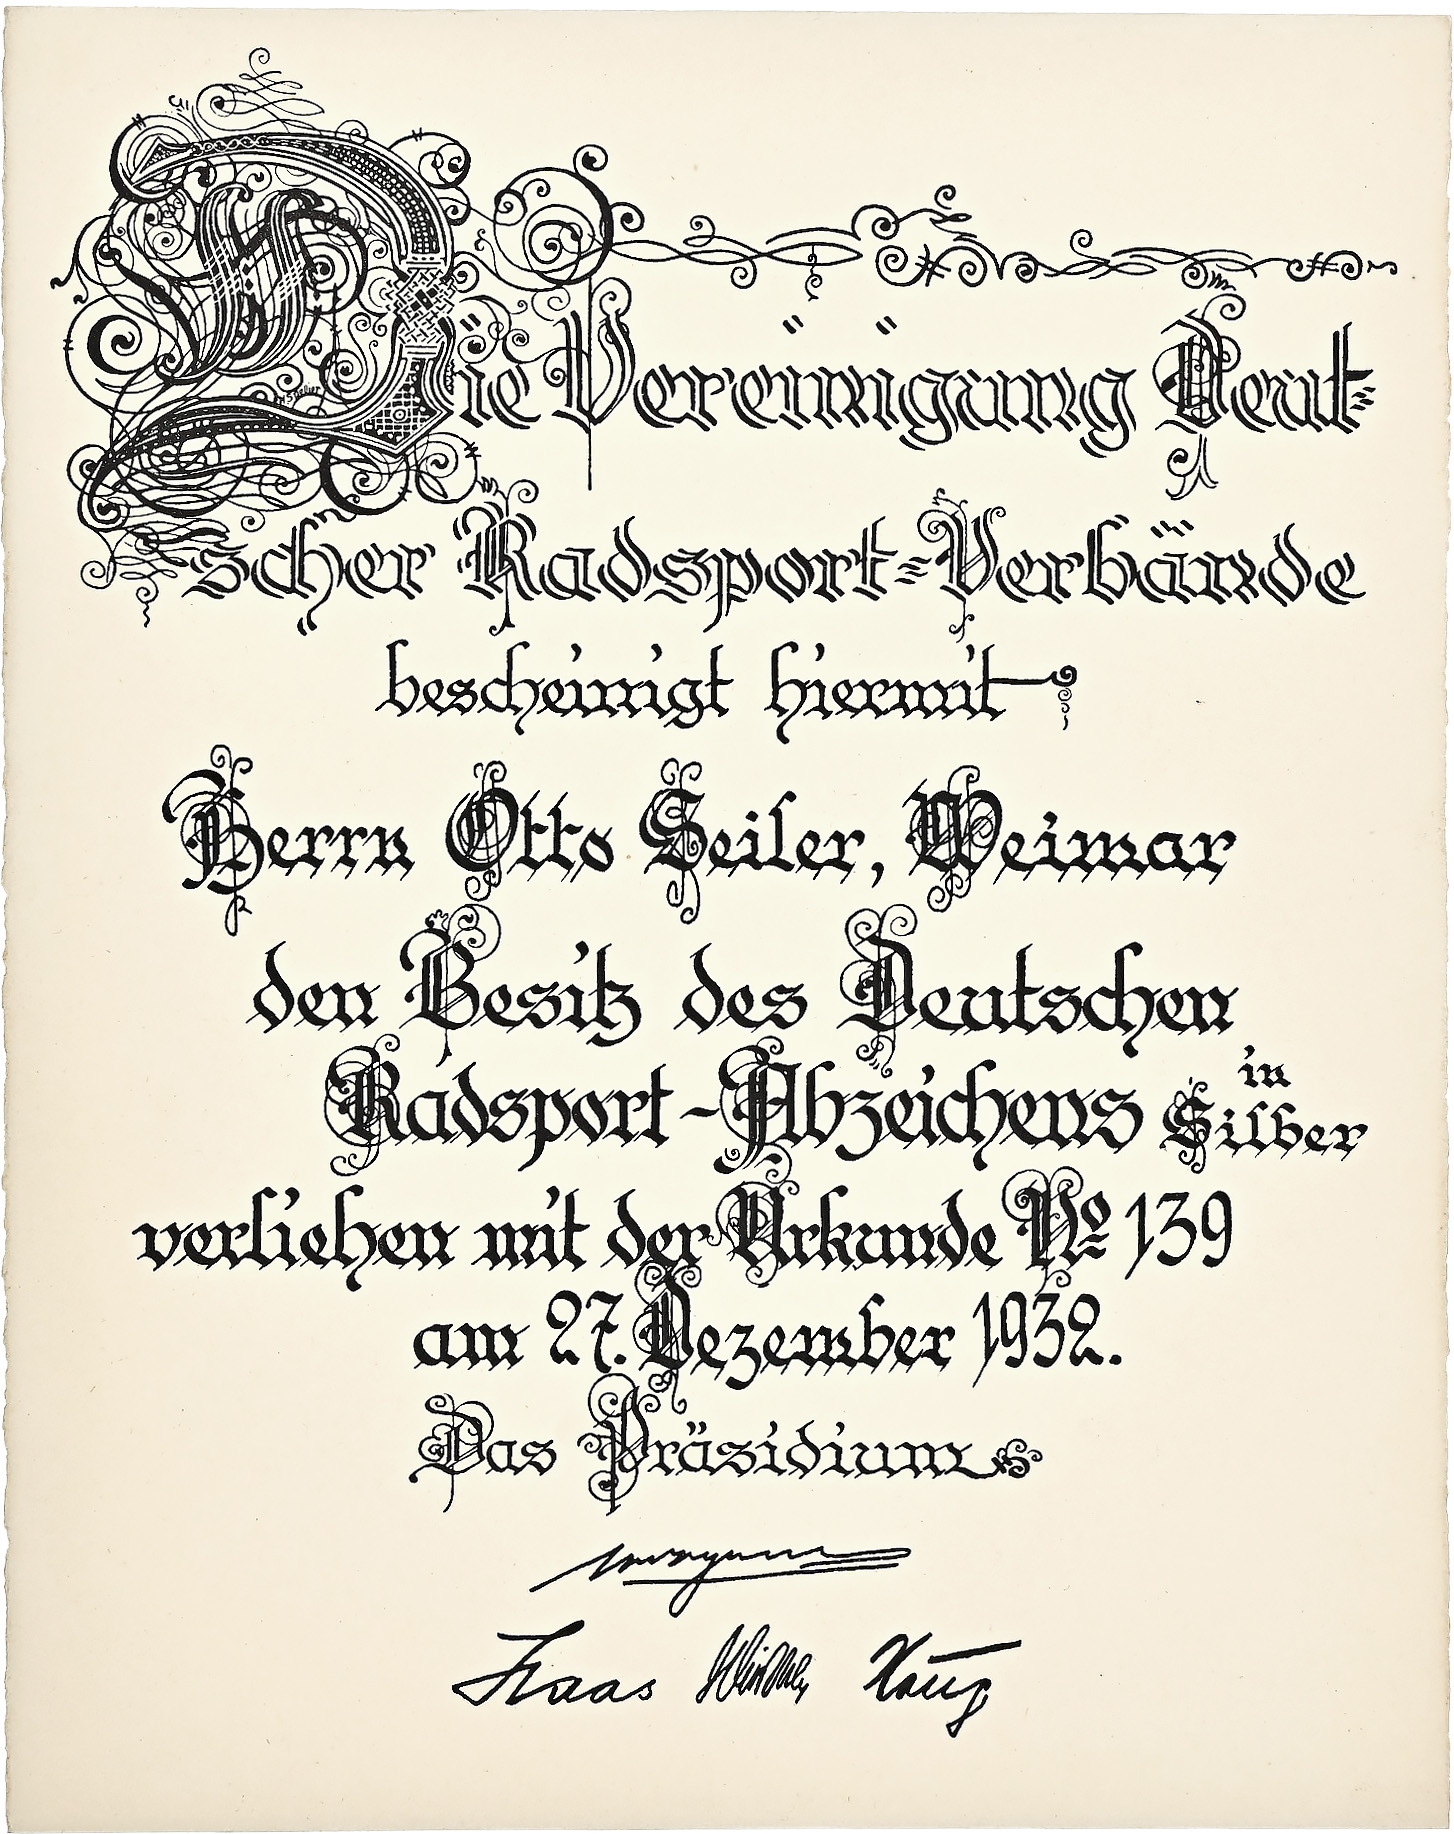 Die Vereinigung Deut=
scher Radsport=Verbände
bescheinigt hiermit
Herrn Otto Seiler, Weimar
den Besitz des Deutschen
Radsport-Abzeichens in Silber
verliehen mit der Urkunde No 139
am 27. Dezember 1932.
Das Präsidium
Haas